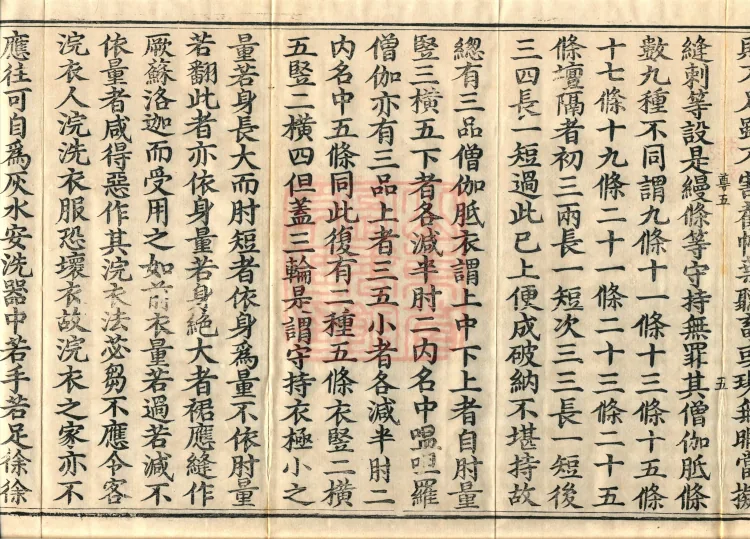 人雖不害
尊五
五
縫刺等設是縵條等守持無罪其僧伽胝條
數九種不同謂九條十一條十三條十五條
十七條十九條二十一條二十三條二十五
條壇隔者初三兩長一短次三三長一短後
三四長一短過此已上便成破納不堪持故
緫有三品僧伽胝衣謂上中下上者自肘量
竪三橫五下者各減半肘二内名中嗢呾羅
僧伽亦有三品上者三五小者各減半肘二
内名中五條同此復有二種五條衣竪二橫
五竪二橫四但蓋三輪是謂守持衣極小之
量若身長大而肘短者依身爲量不依肘量
若翻此者亦依身量若身絕大者裙應縫作
厥蘇洛迦而受用之如前衣量若過若減不
依量者咸得惡作其浣衣法苾芻不應令客
浣衣人浣洗衣服恐壞衣故浣衣之家亦不
應往可自爲灰水安洗器中若手若足徐徐